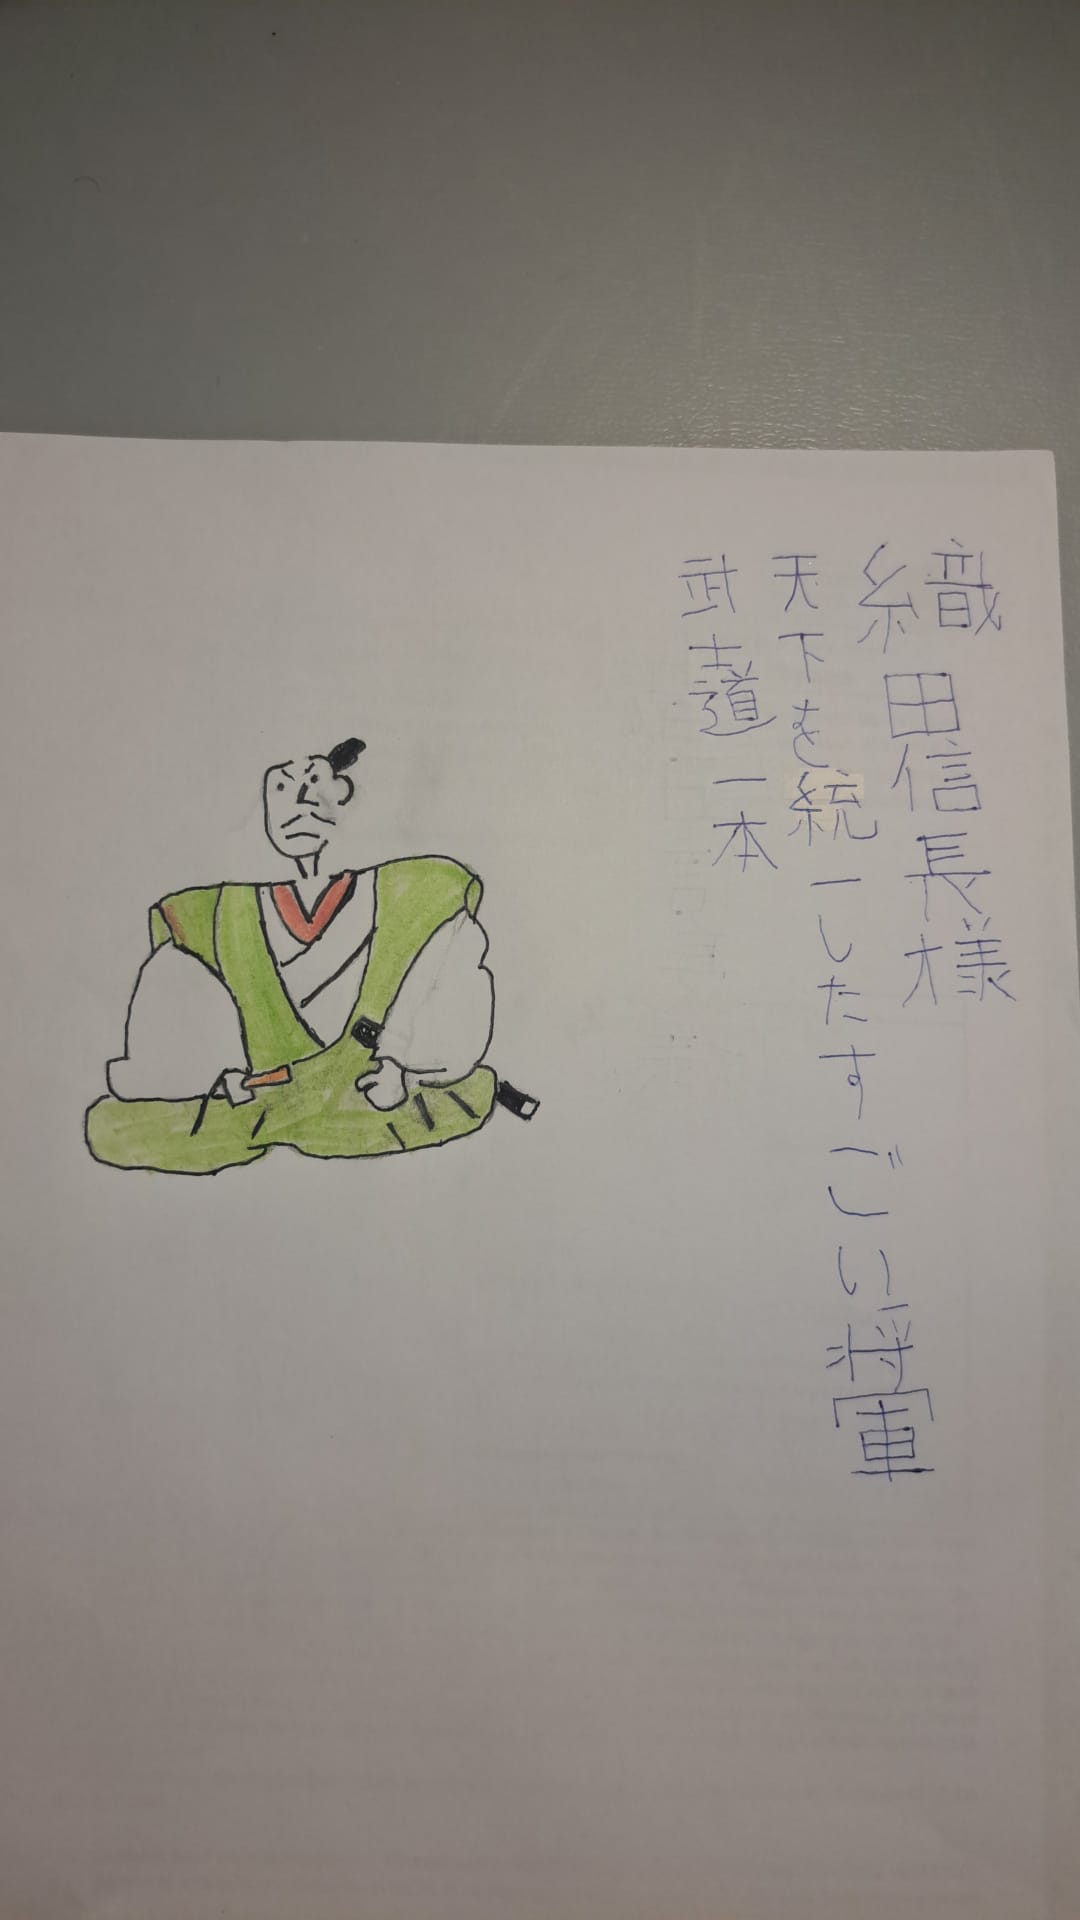 織田信長様
天下を統一したすごい将軍
武士道一本